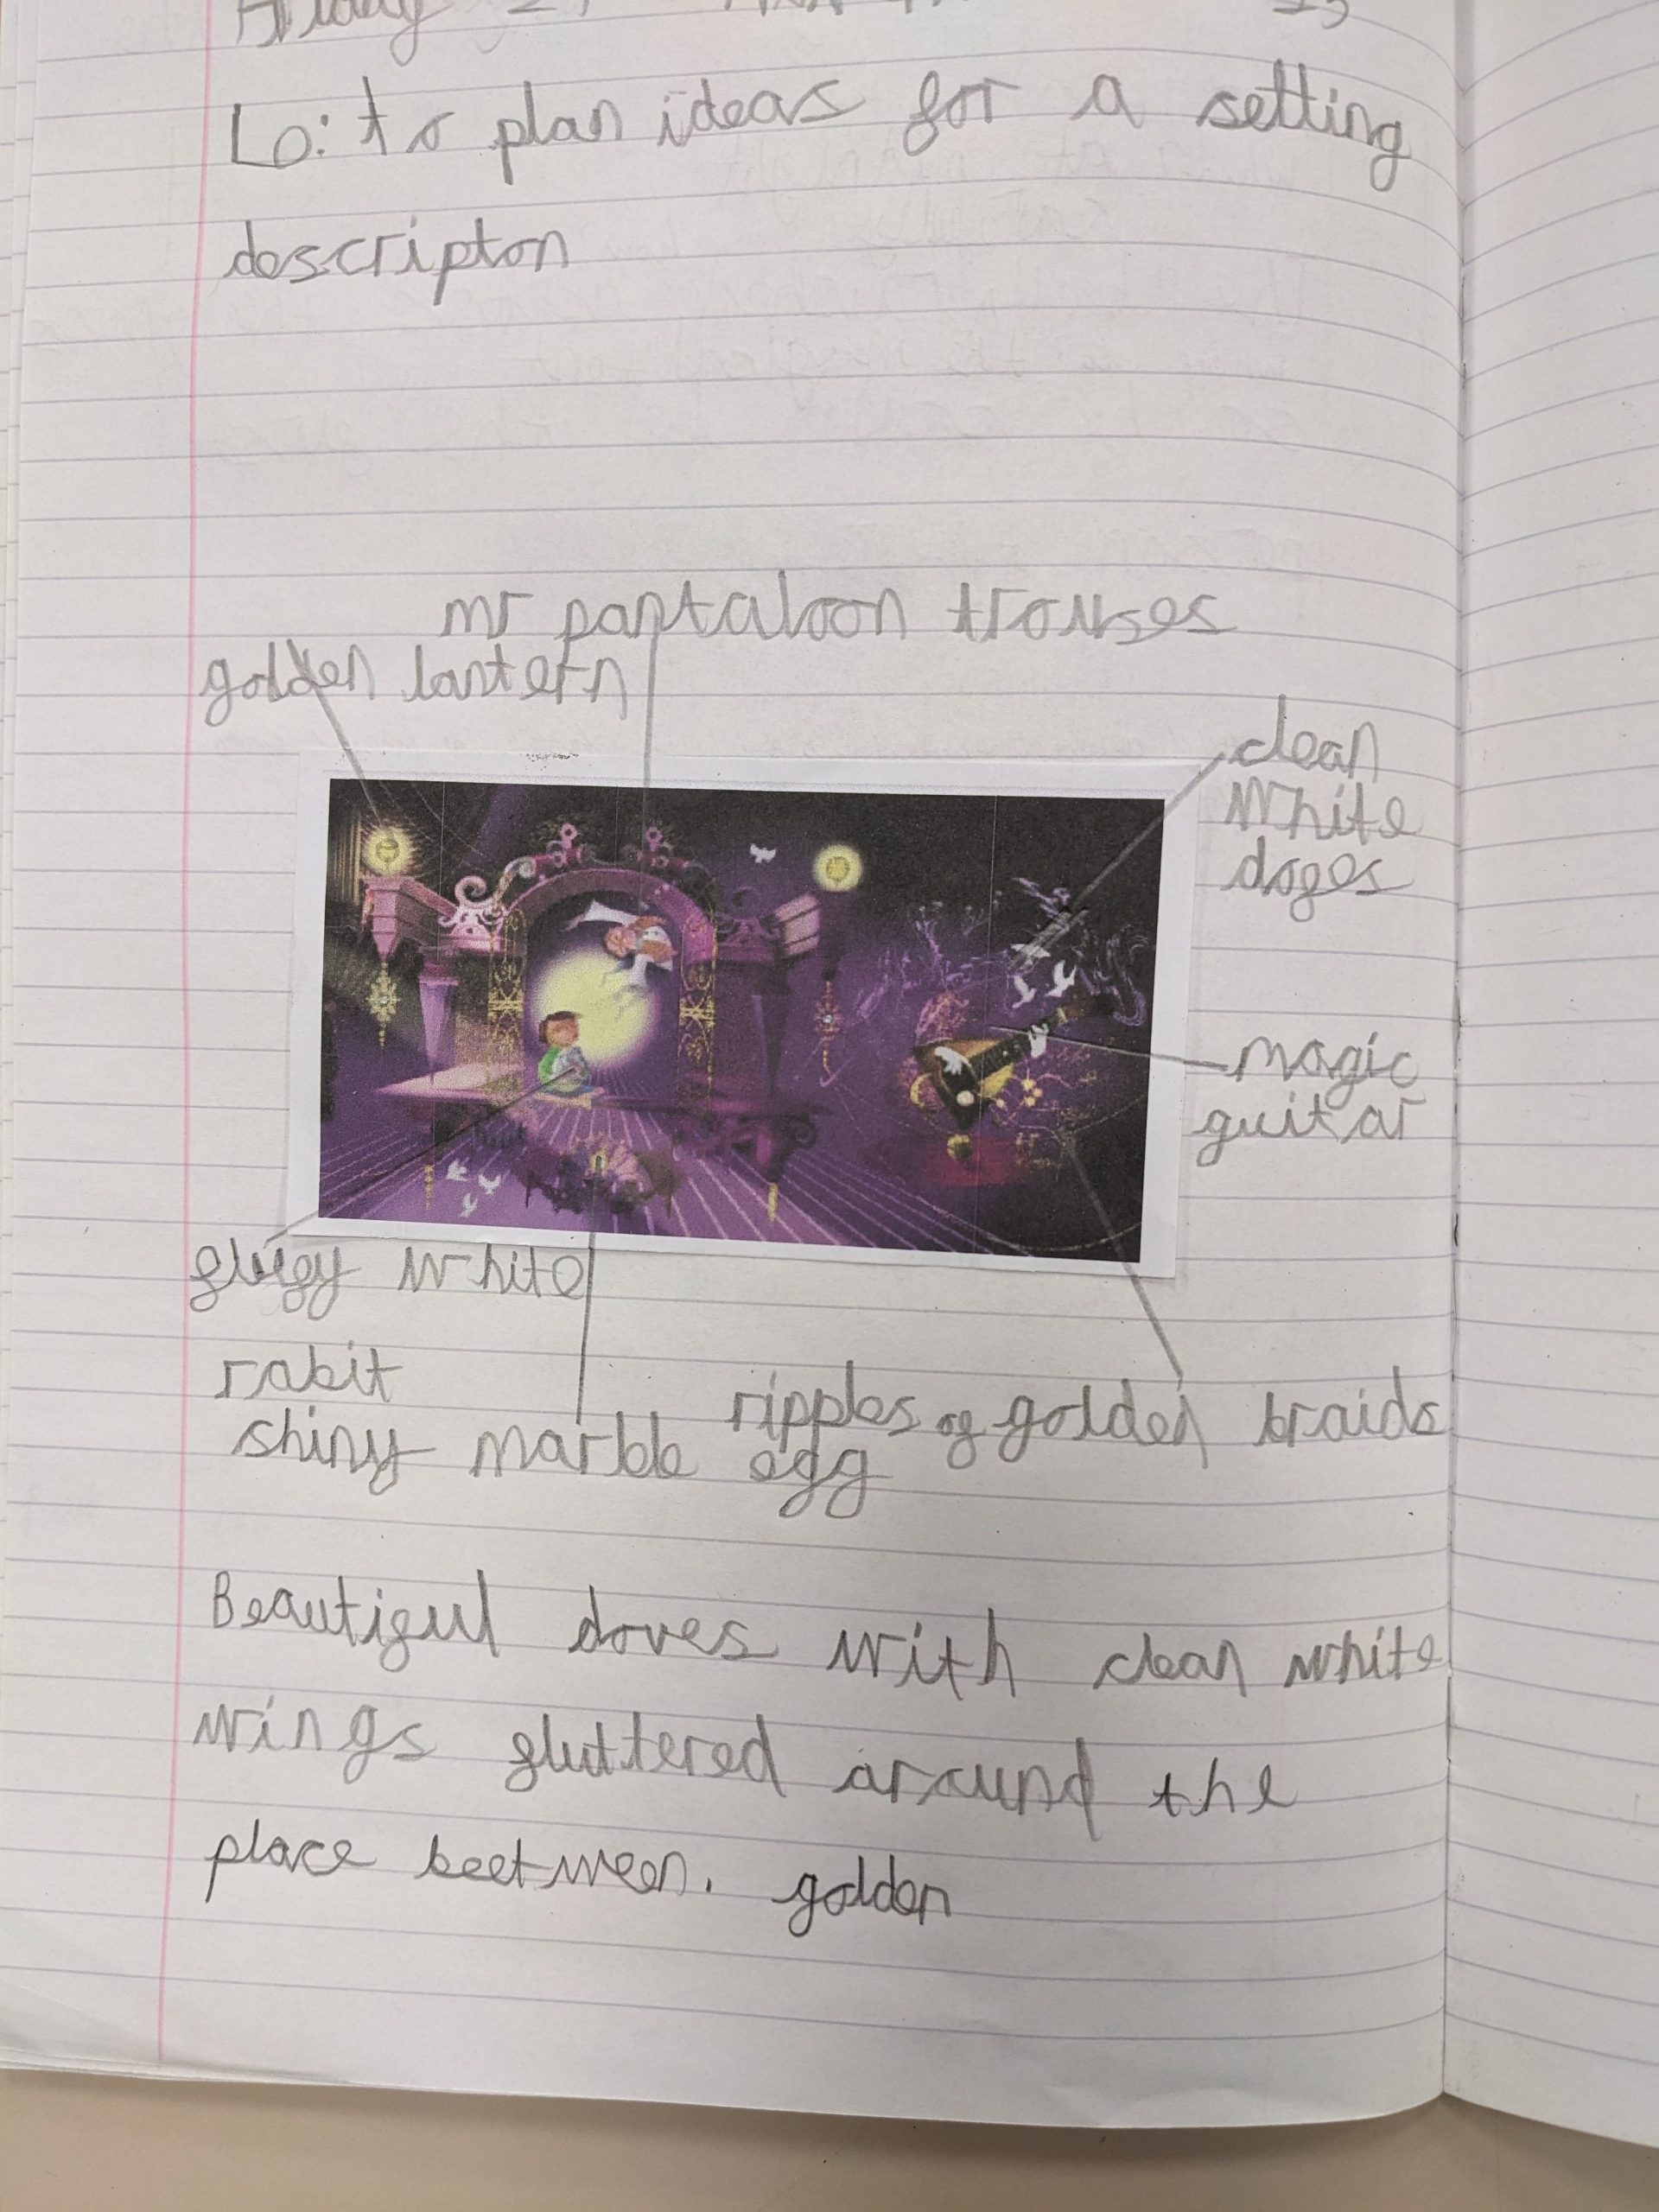 Friday
Lo: to plan ideas for a setting
descripton
mr pantaloon trouses
golden lantern
clean
white
doges
magic
guitar
flufy white
rabit
ripples of golden braids
shiny marble egg
Beautiful doves with clean white
wings fluttered around the
place beetween. golden